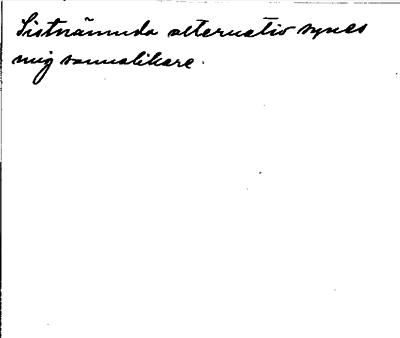 Sistnämnda alternativ synes
mig sannolikare.